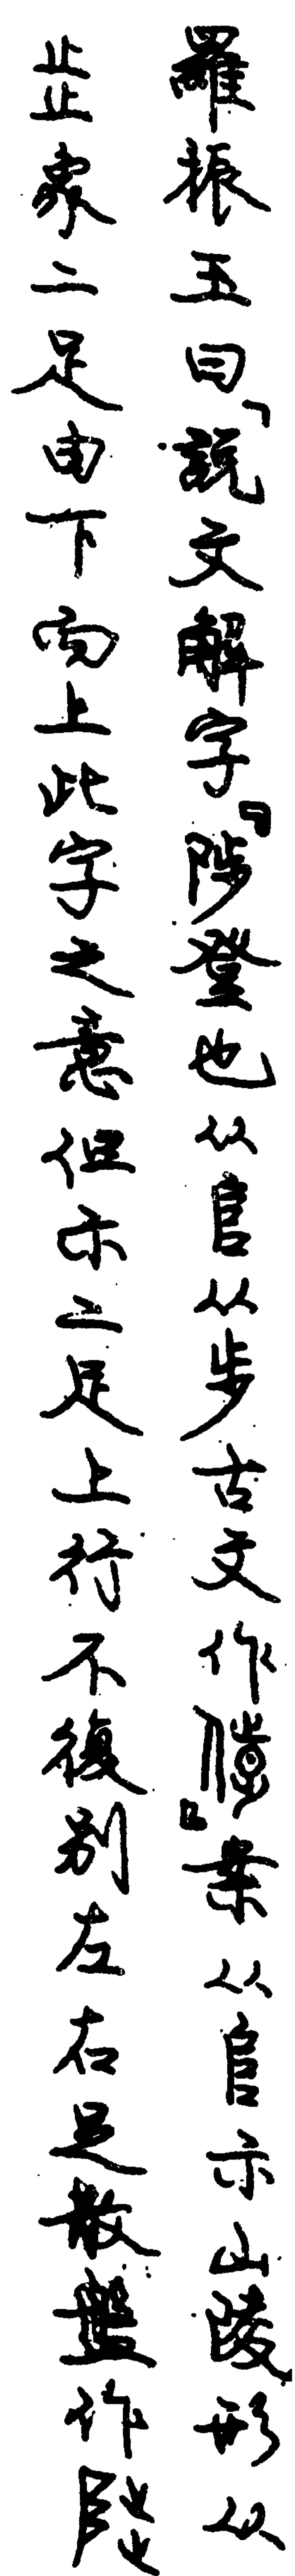 羅振玉曰「說文解字『陟登也从𨸏从步古文作𨽐』案从𨸏示山陵形从
𣥠象二足由下而上此字之意但示二足上行不復別左右足散盤作